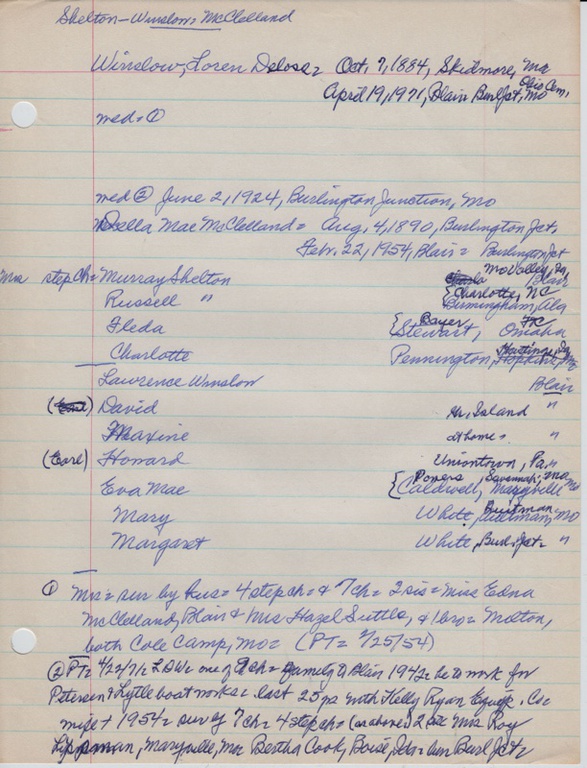 Shelton-Winslow = McClelland
Winslow, Loren Deloss = Oct. 7, 1884, Skidmore, Mo
Ohio Cem.
April 19, 1971, Blair Burl Jct, Mo
med = ①
med ② June 2, 1924, Burlington Junction, Mo
Della Mae McClelland = Aug. 4, 1890, Burlington Jct.
Feb. 22, 1954, Blair = Burlington Jct
Mrs step ch = Murray Shelton Mo Valley, Ia, Blair
Russell " {Charlotte, NC
Birmingham, Ala
Fleda {Bayer
Stewart, Omaha
Charlotte Pennington, Hastings, Ia
Hopkins, Mo
Lawrence Winslow Blair
David Gr. Island "
Maxine at home = "
(Earl) Howard Uniontown, Pa "
Eva Mae {Powers, Savannah, Mo
Caldwell, Maryville, Mo
Mary White, Quitman, Mo
Margaret White, Burl. Jct = "
① Mrs = sur by hus = 4 step ch = & 7 ch = 2 sis = Miss Edna
McClelland, Blair & Mrs Hazel Suttle, & 1 bro = Molton,
both Cole Camp, Mo = (PT = 2/25/54)
② PT = 4/22/71 = LDW = one of 9 ch = family to Blair 1942 = he to work for
Petersen & Lytle boat works = last 25 yrs with Kelly Ryan Equip. Co =
wife + 1954 = sur by 7 ch = 4 step ch = (as above) 2 sis Mrs Roy
Lippman, Maryville, Mrs Bertha Cook, Boise, Ida = bur Burl Jct =